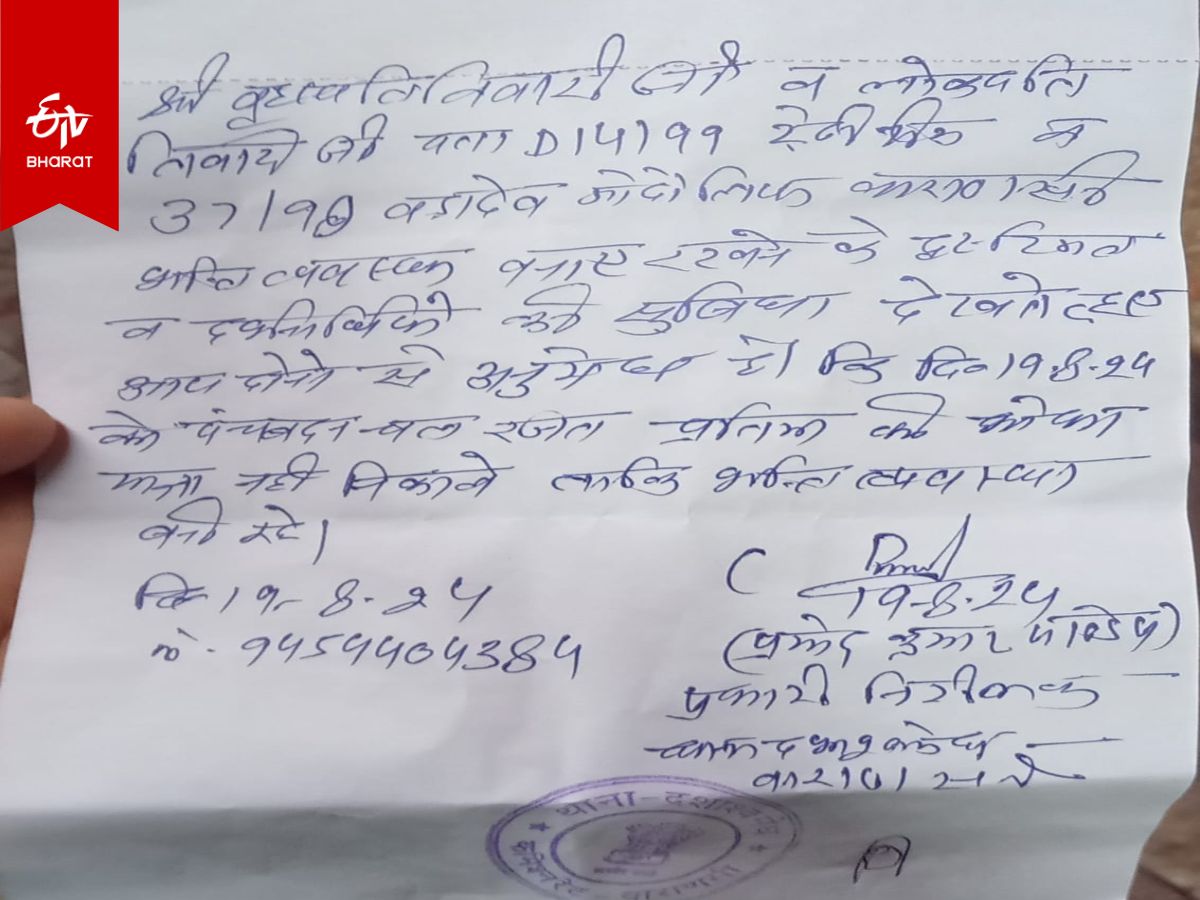 ETV
BHARAT
श्री वाचस्पति तिवारी जी व लोकपति
तिवारी जी पता D 14/99 टेढ़ीनीम व
37/98 बड़ादेव गोदौलिया वाराणसी
शान्ति व्यवस्था बनाए रखने के दृष्टिगत
व दर्शनार्थियों की सुविधा देखते हुए
आप दोनो से अनुरोध है। कि दि० 19.8.24
को पंचबदन चल रजत प्रतिमा की शोभा
यात्रा नही निकाले ताकि शान्ति व्यवस्था
बनी रहे।
दि- 19-8-24
नो- 9454404384
19-8-24
(प्रमोद कुमार पाण्डेय)
प्रभारी निरीक्षक
थाना दशाश्वमेध
वाराणसी
थाना - दशाश्वमेध
कमिश्नरेट - वाराणसी